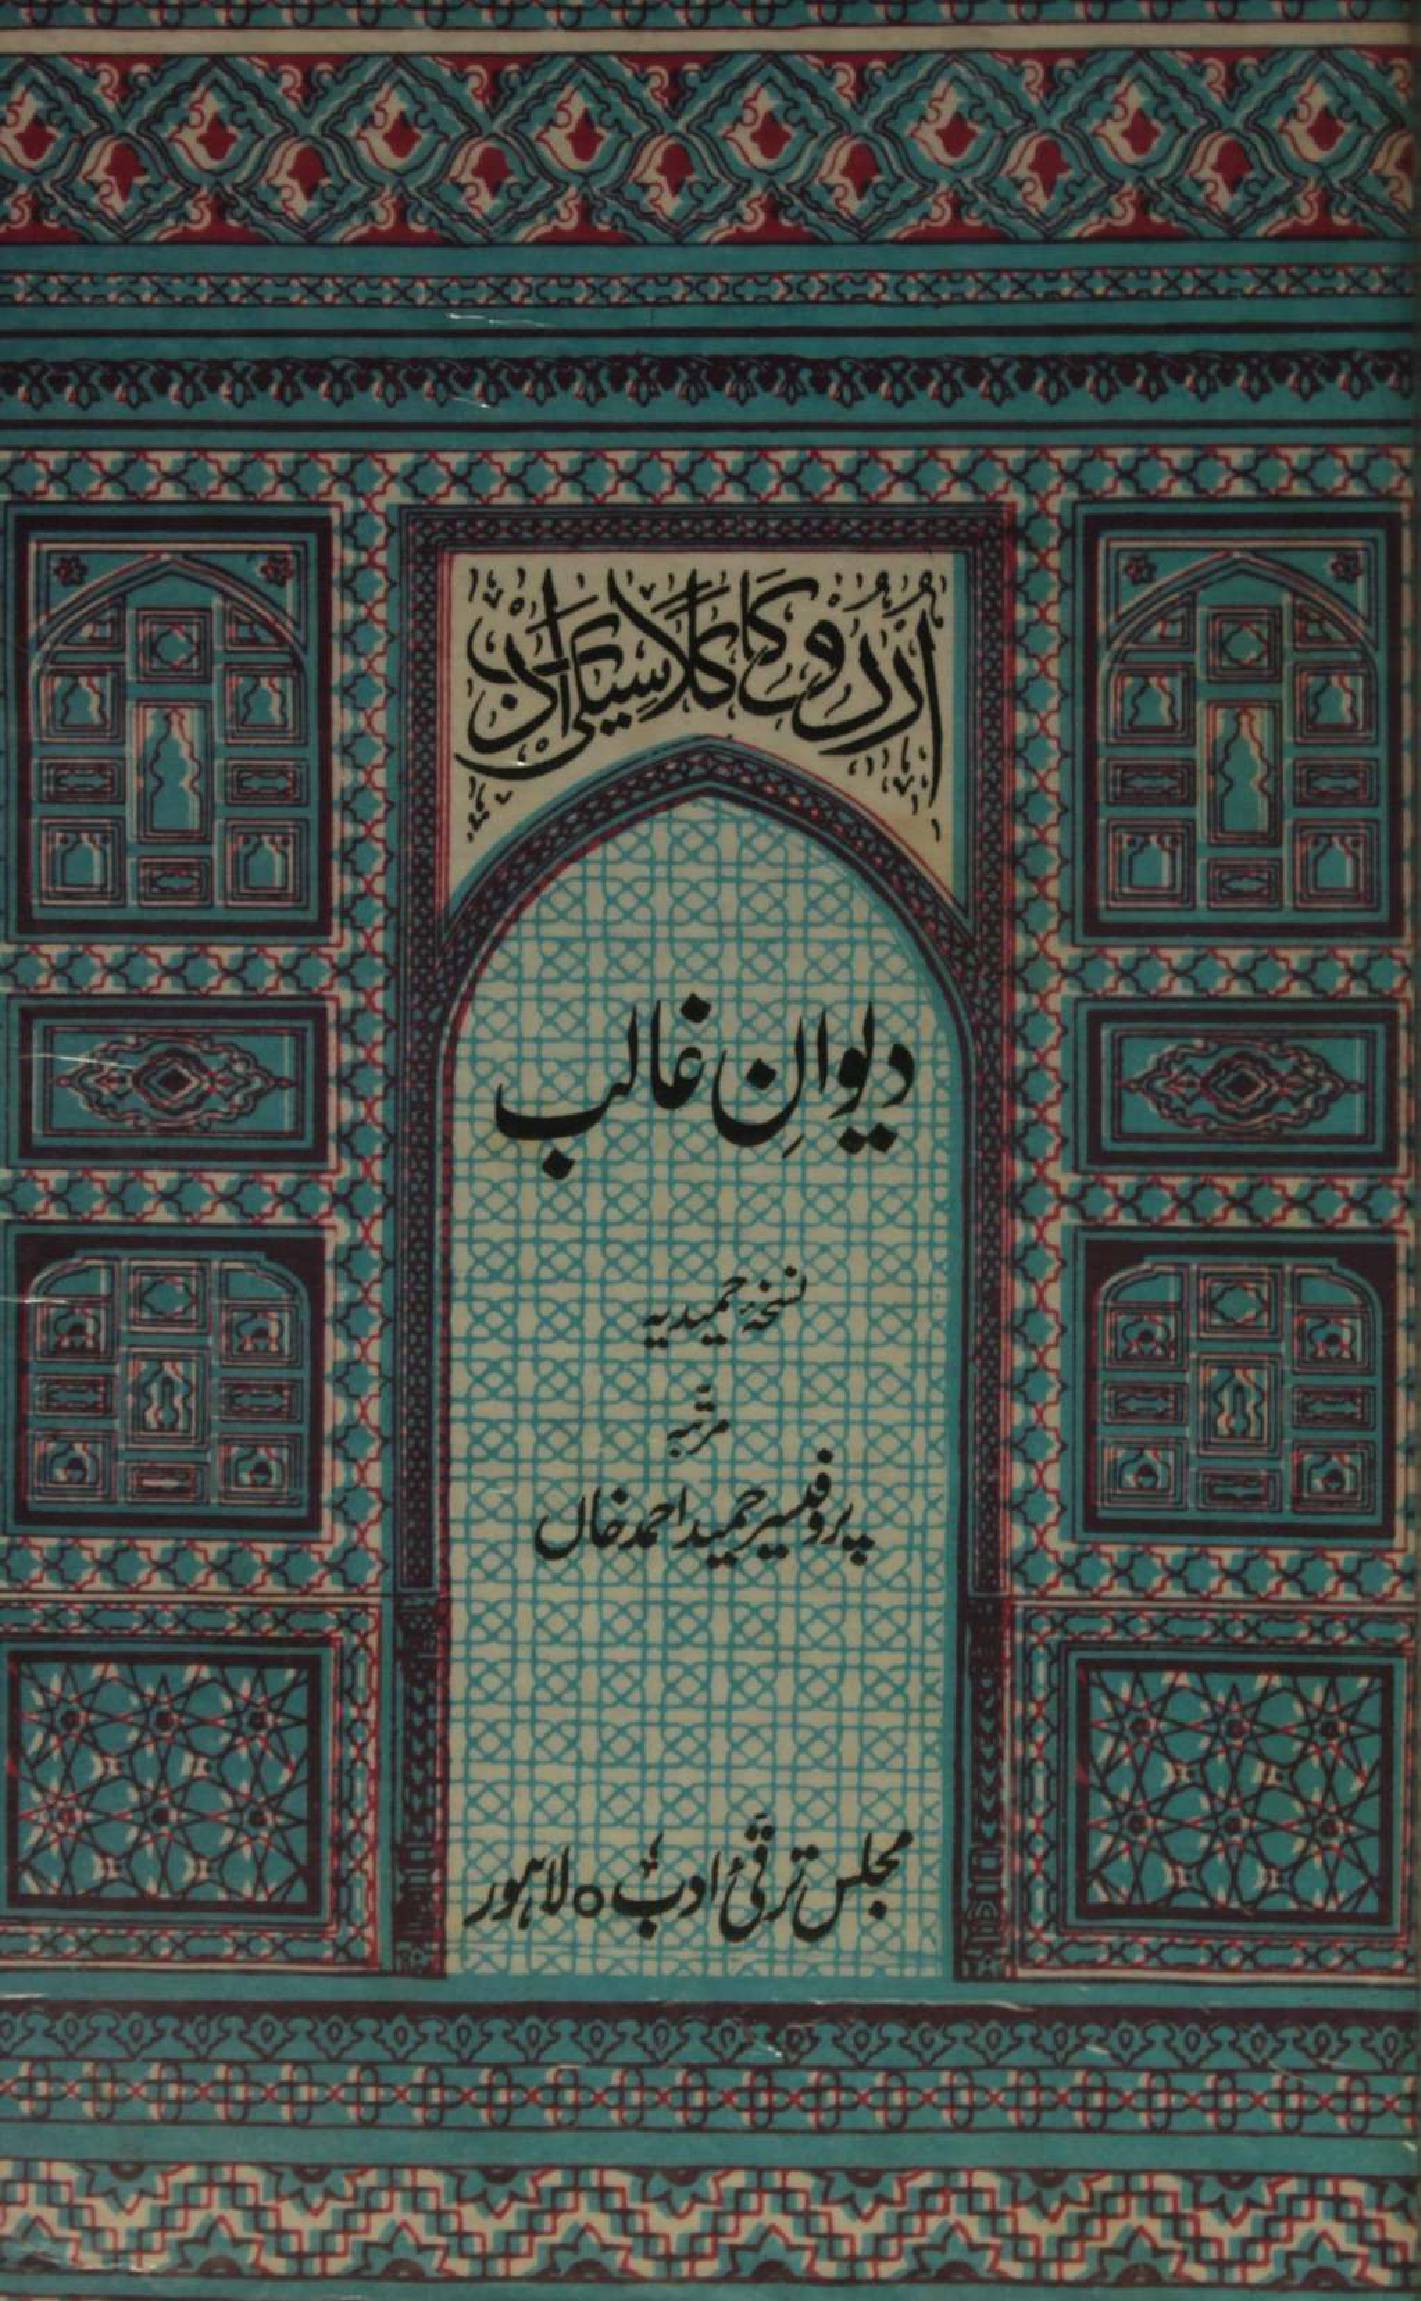 اُردو کا کلاسیکی ادب
دیوانِ غالب
نسخۂ حمیدیہ
مرتبہ
پروفیسر حمید احمد خاں
مجلس ترقیٔ ادب ○ لاہور